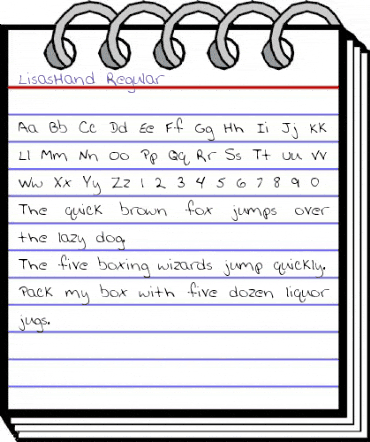 LisasHand Regular
Aa Bb Cc Dd Ee Ff Gg Hh Ii Jj KK
Ll Mm Nn Oo Pp Qq Rr Ss Tt uu VV
Ww Xx Yy Zz 1 2 3 4 5 6 7 8 9 0
The quick brown fox jumps over
the lazy dog.
The five boxing wizards jump quickly.
Pack my box with five dozen liquor
jugs.